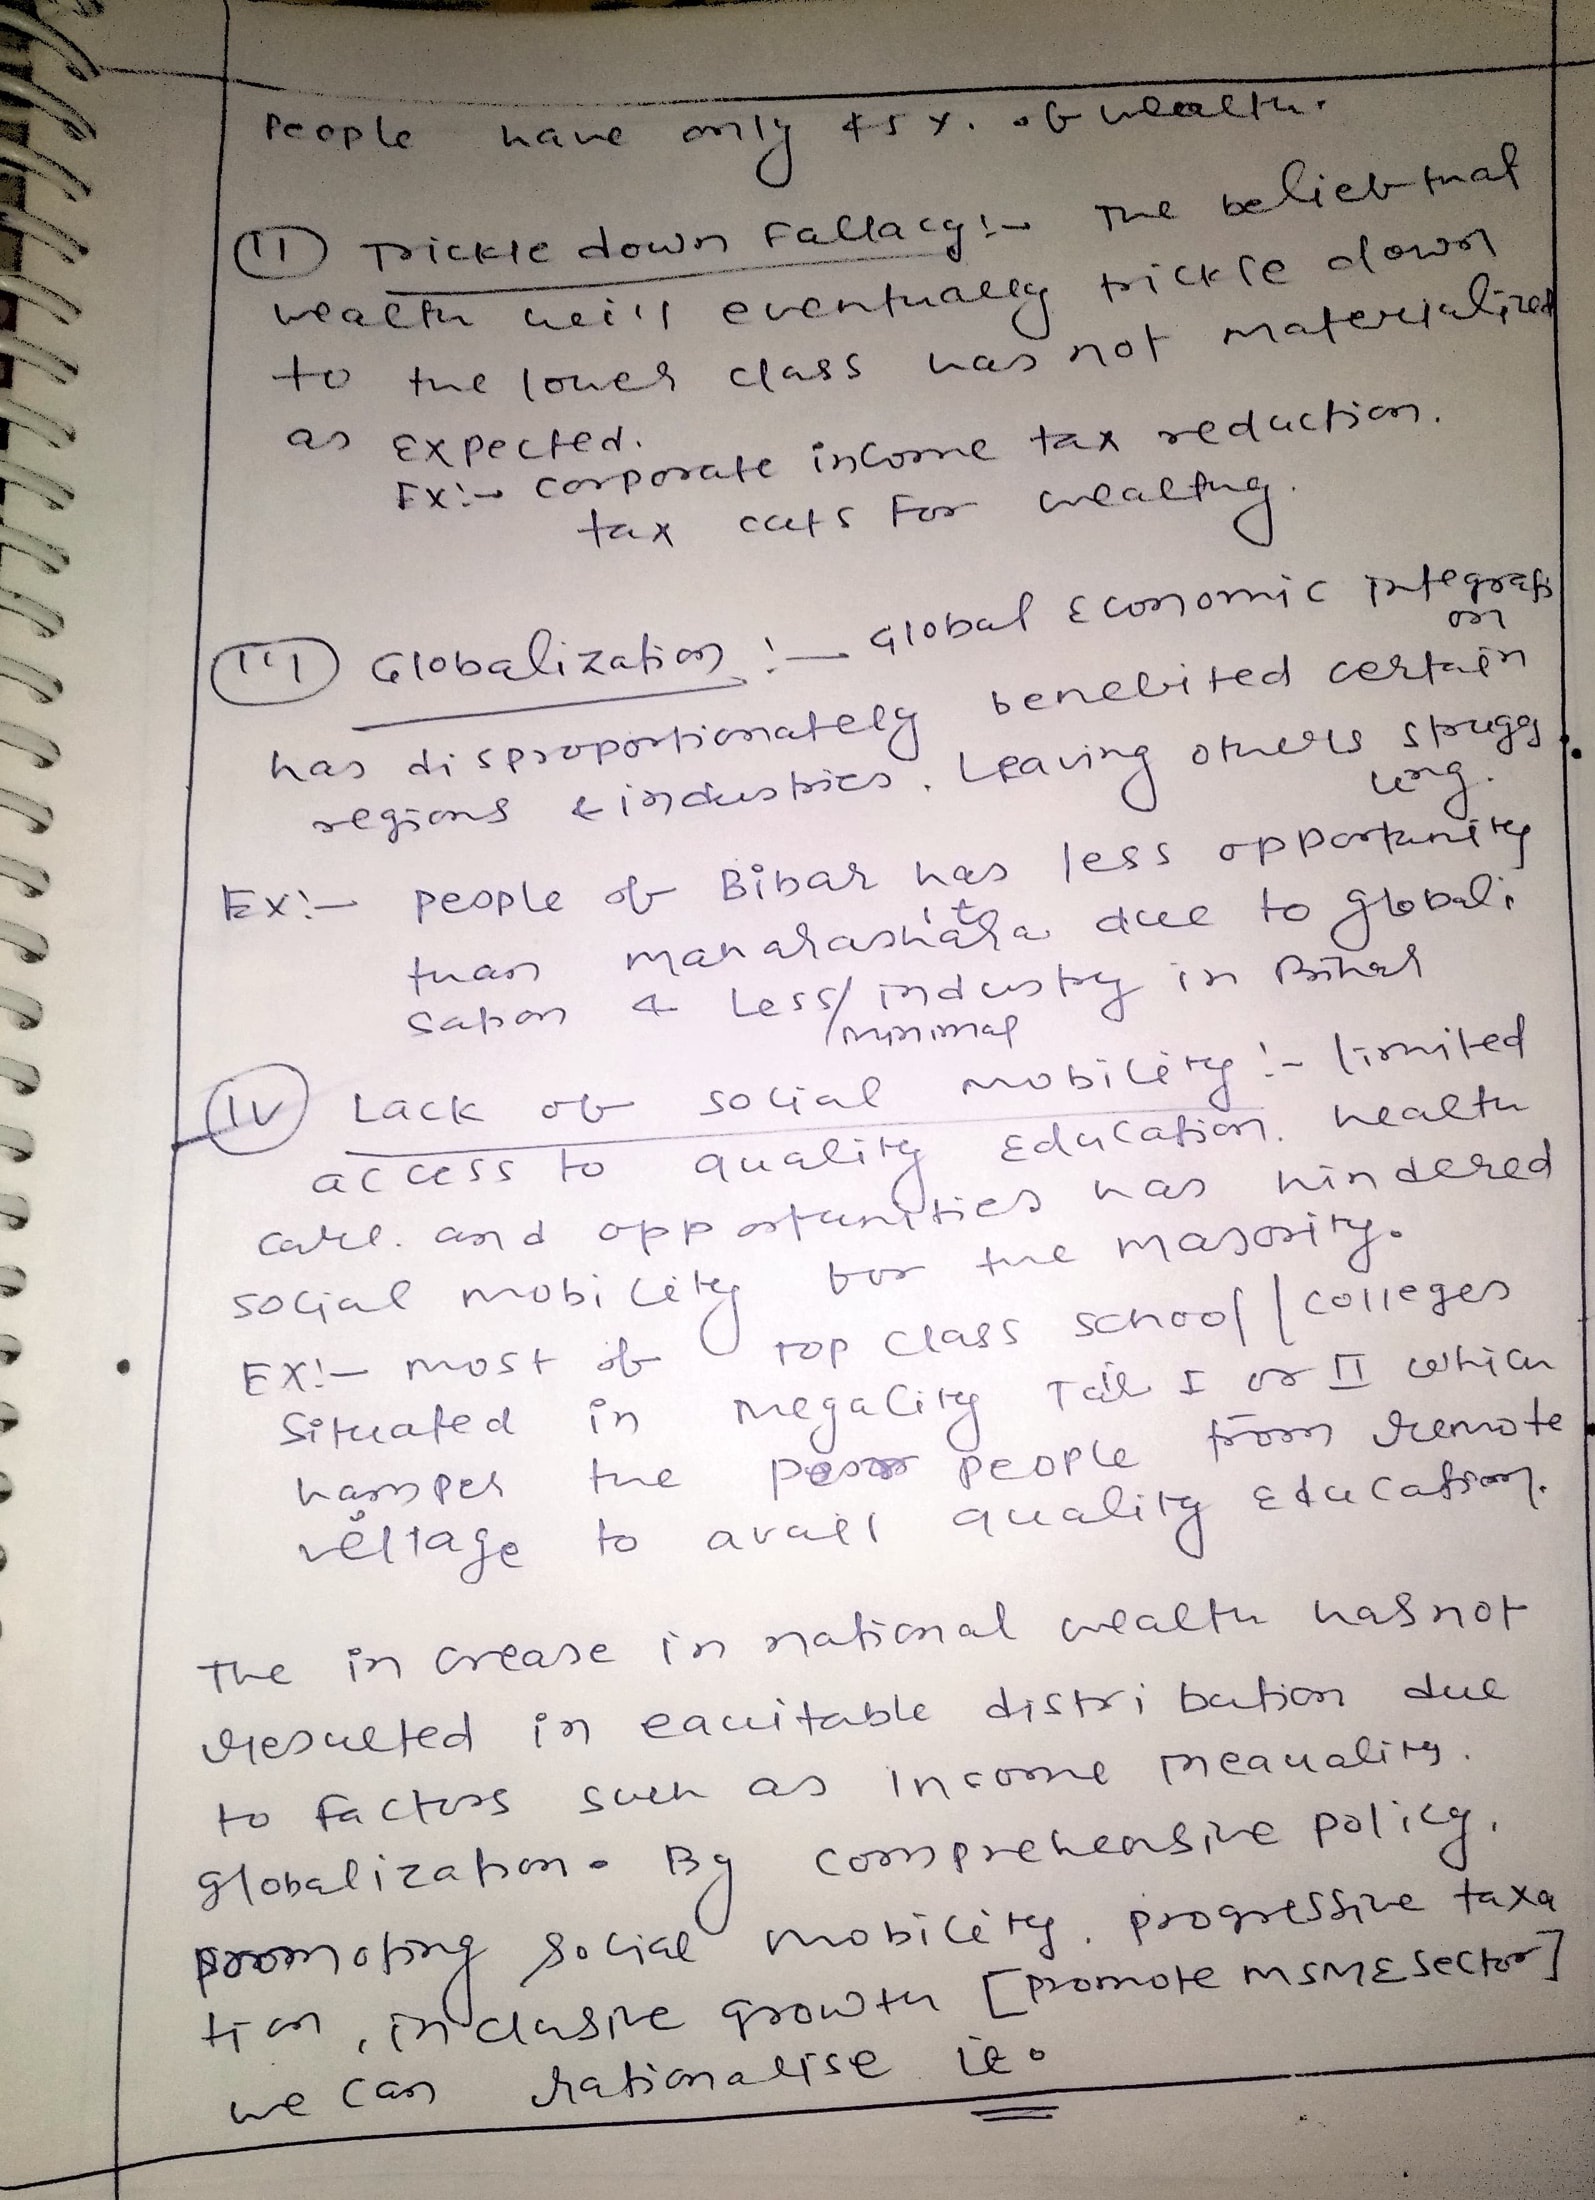 People have only 45%. of wealth.
(ii) Trickle down Fallacy :- The belief that
wealth will eventually trickle down
to the lower class has not materialized
as expected.
Ex:- corporate income tax reduction.
tax cuts For wealthy.
(iii) Globalization :- Global Economic Integrati
on
has disproportionately benefited certain
regions & industries, Leaving others strugg
ling.
Ex:- people of Bihar has less opportunity
than maharashtra due to globali
sation & Less/ industry in Bihar
minimal
(iv) Lack of social mobility :- limited
access to quality Education, health
care. and opportunities has hindered
social mobility for the majority.
EX:- most of TOP class school / colleges
Situated in megacity Tair I or II which
hamper the poor people from remote
village to avail quality Education.
The increase in national wealth has not
resulted in equitable distribution due
to factors such as income inequality.
globalization. By comprehensive policy,
promoting social mobility, progressive taxa
tion, inclusive growth [promote MSME sector]
we can rationalise it.